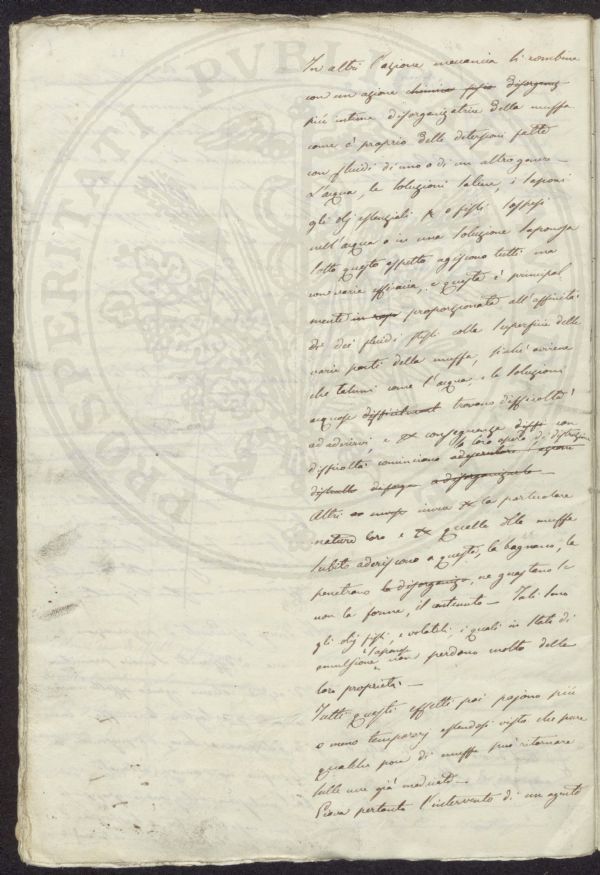 In altri l'azione meccanica si combina
con un azione chimica fisio disorganiz
più intima disorganizatrice della muffa
come è proprio delle detersioni fatte
con fluidi di uno o di un altro genere —
L'acqua, le soluzioni saline, i saponi
gli olj essenziali & o fissi sospesi
nell'acqua o in una soluzione saponosa
sotto questo aspetto agiscono tutti ma
con varia efficacia, e questa è principal
mente in rap proporzionata all'affinità
di dei fluidi stessi colla superficie delle
varie parti della muffa, sicché avviene
che taluni come l'acqua, e le soluzioni
acquose difficilment trovano difficoltà
ad aderirvi, e & conseguenza diffi con
la loro opera di distruzione
difficoltà cominciano
distrutto disorga a disorganizarla —
Altri invece & la particolare
natura loro e & quella della muffa
subito aderiscono a questa, la bagnano, la
penetrano la disorganiza, ne guastano se
non la forma, il contenuto — Tali sono
gli olj fissi, e volatili, i quali in stato di
saponosa
emulsione non perdono molto della
loro proprietà —
Tutti questi effetti poi pajono più
o meno temporarj essendosi visto che pure
qualche poco di muffa può ritornare
sulle uve già medicate —
Giova pertanto l'intervento di un agente
PROSPERITATI PVBLI